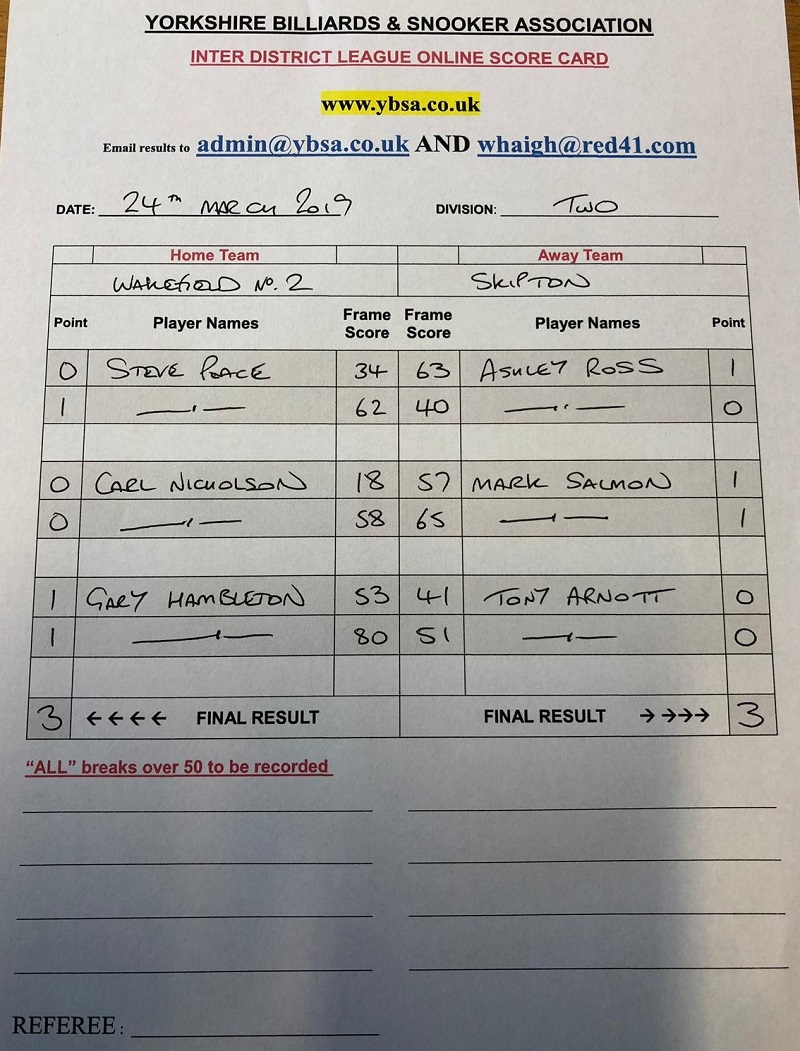 YORKSHIRE BILLIARDS & SNOOKER ASSOCIATION
INTER DISTRICT LEAGUE ONLINE SCORE CARD
www.ybsa.co.uk
Email results to admin@ybsa.co.uk AND whaigh@red41.com
DATE: 24TH MARCH 2019 DIVISION: TWO
Home Team Away Team
WAKEFIELD NO. 2 SKIPTON
Point Player Names Frame Score Frame Score Player Names Point
0 STEVE PEACE 34 63 ASHLEY ROSS 1
1 —"— 62 40 —"— 0
0 CARL NICHOLSON 18 57 MARK SALMON 1
0 —"— 58 65 —"— 1
1 GARY HAMBLETON 53 41 TONY ARNOTT 0
1 —"— 80 51 —"— 0
3 ←←←← FINAL RESULT FINAL RESULT →→→→ 3
“ALL” breaks over 50 to be recorded
REFEREE: